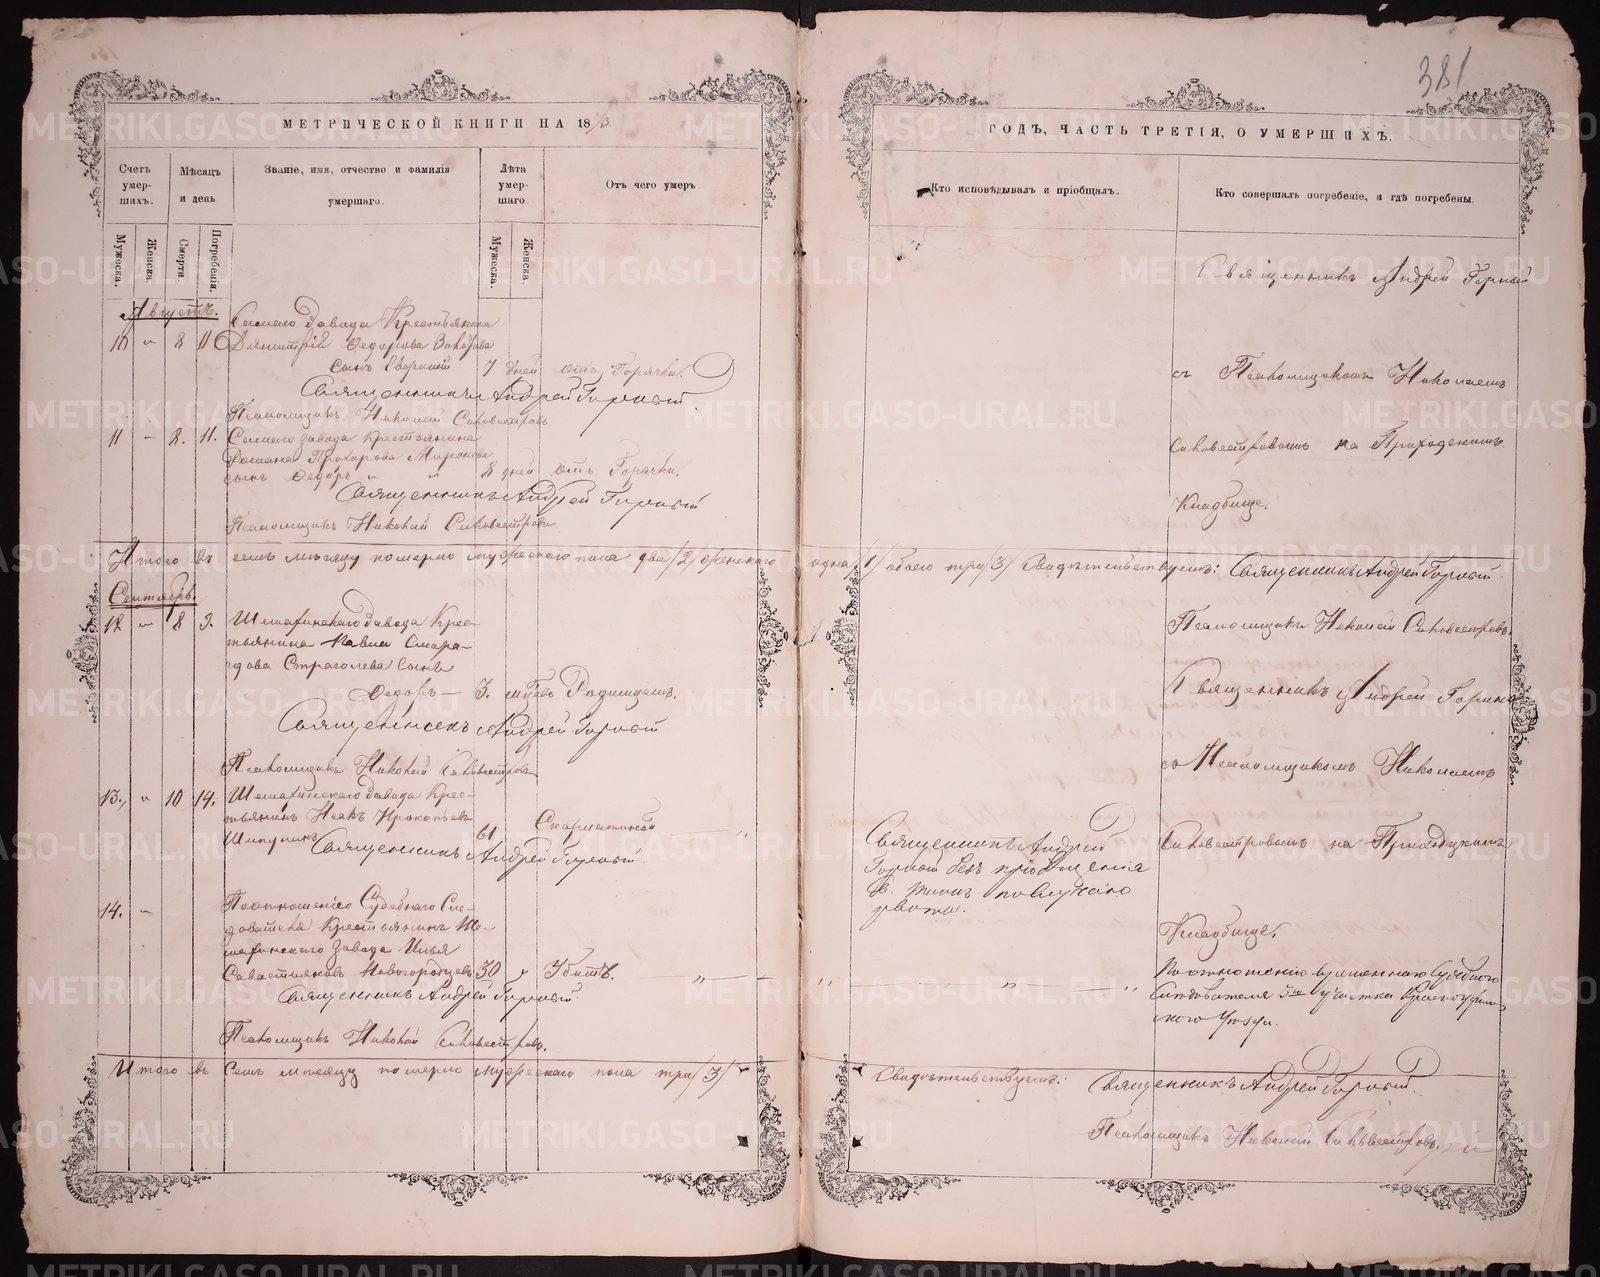 381
МЕТРИЧЕСКОЙ КНИГИ НА 18
Счетъ умер-шихъ.
Мѣсяцъ и день
Званіе, имя, отчество и фамилія умершаго.
Лѣта умер-шаго.
Отъ чего умеръ
Мужеска.
Женска.
Смерти.
Погребенія.
Мужеска.
Женска.
Августъ.
завода Крестьянина
10 " 8 11 Димитрій Ѳедорова
сынъ 7 дней отъ Горячки.
Священникъ Андрей Горный
Псаломщикъ Николай Сильвестровъ
11 " 8. 11. завода Крестьянина
Прохорова Миронова
сынъ Ѳедоръ " " 8 дней отъ Горячки.
Священникъ Андрей Горный
Псаломщикъ Николай Сильвестровъ
Итого въ семъ мѣсяцу померло мужескаго пола два /2/ женскаго
Сентябрь.
12 " 8 9. Шемахинскаго завода Крес-
тьянина Павла Смара-
гдова сынъ
Ѳедоръ — 3. Родимцемъ.
Священникъ Андрей Горный
Псаломщикъ Николай Сильвестровъ
13. " 10 14. Шемахинскаго завода Крес-
тьянинъ Исакъ Прокопьевъ
Шипулинъ 61 Скарлатиной "
Священникъ Андрей Горный.
14. " По отношенію Судебнаго Слѣ-
дователя Крестьянинъ Ше-
махинскаго завода Илья
Савастьяновъ Новогородцевъ 30 " Убитъ. "
Священникъ Андрей Горный.
Псаломщикъ Николай Сильвестровъ.
Итого въ Семъ мѣсяцу померло мужескаго пола три /3/
ГОДЪ, ЧАСТЬ ТРЕТІЯ, О УМЕРШИХЪ.
Кто исповѣдывалъ и пріобщалъ.
Кто совершалъ погребеніе, и гдѣ погребены.
Священникъ Андрей Горный
съ Псаломщикомъ Николаемъ
Сильвестровымъ на Приходскомъ
Кладбище.
одна /1/ обоего три /3/ Свидѣтельствуемъ: Священникъ Андрей Горный.
Псаломщикъ Николай Сильвестровъ.
Священникъ Андрей Горный
съ Псаломщикомъ Николаемъ
Сильвестровымъ на Приходскомъ
Кладбище.
Священникъ Андрей
Горный безъ пріобщенія
Св. Таинъ по случаю
рвоты.
" " "
По отношенію Судебнаго
Слѣдователя 3го участка Красноуфим-
скаго Уѣзда.
Свидѣтельствуемъ: Священникъ Андрей Горный.
Псаломщикъ Николай Сильвестровъ.
METRIKI.GASO-URAL.RU